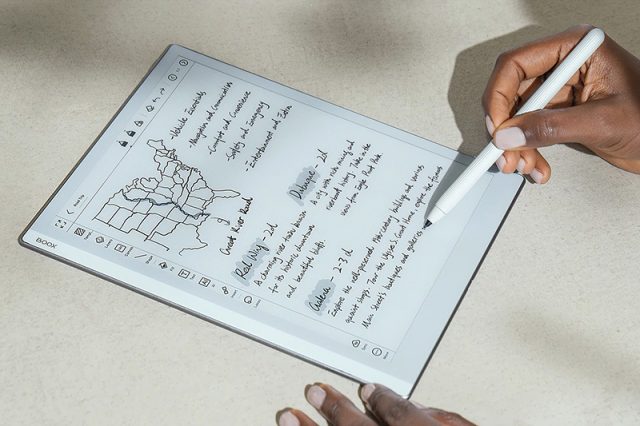 BOOX
- Vehicle Essentials
- Navigation and Communication
- Comfort and Convenience
Safety and Emergency
- Entertainment and Extra
Great River Road
Red Wing - 2d
A charming river town known
for its historic downtown
and beautiful bluffs.
Dubuque - 2d
A city with rich mining and
riverboat history. Take in the
views from Eagle Point Park.
Galena - 2-3 d
Explore the well-preserved 19th-century buildings and
quaint shops. Tour the Ulysses S. Grant Home, explore the famous
Main Street's boutiques and galleries